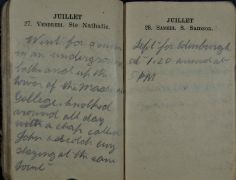 JUILLET
27. VENDREDI. Ste Nathalie.
Went for a swim
in an underground
bath and up the
tower of the
College, knocked
around all day
with a chap called
John a Scotch guy
staying at the same
JUILLET
28. SAMEDI. S. Samson.
Left for Edinburgh
at 1.20 arrived at
5 PM